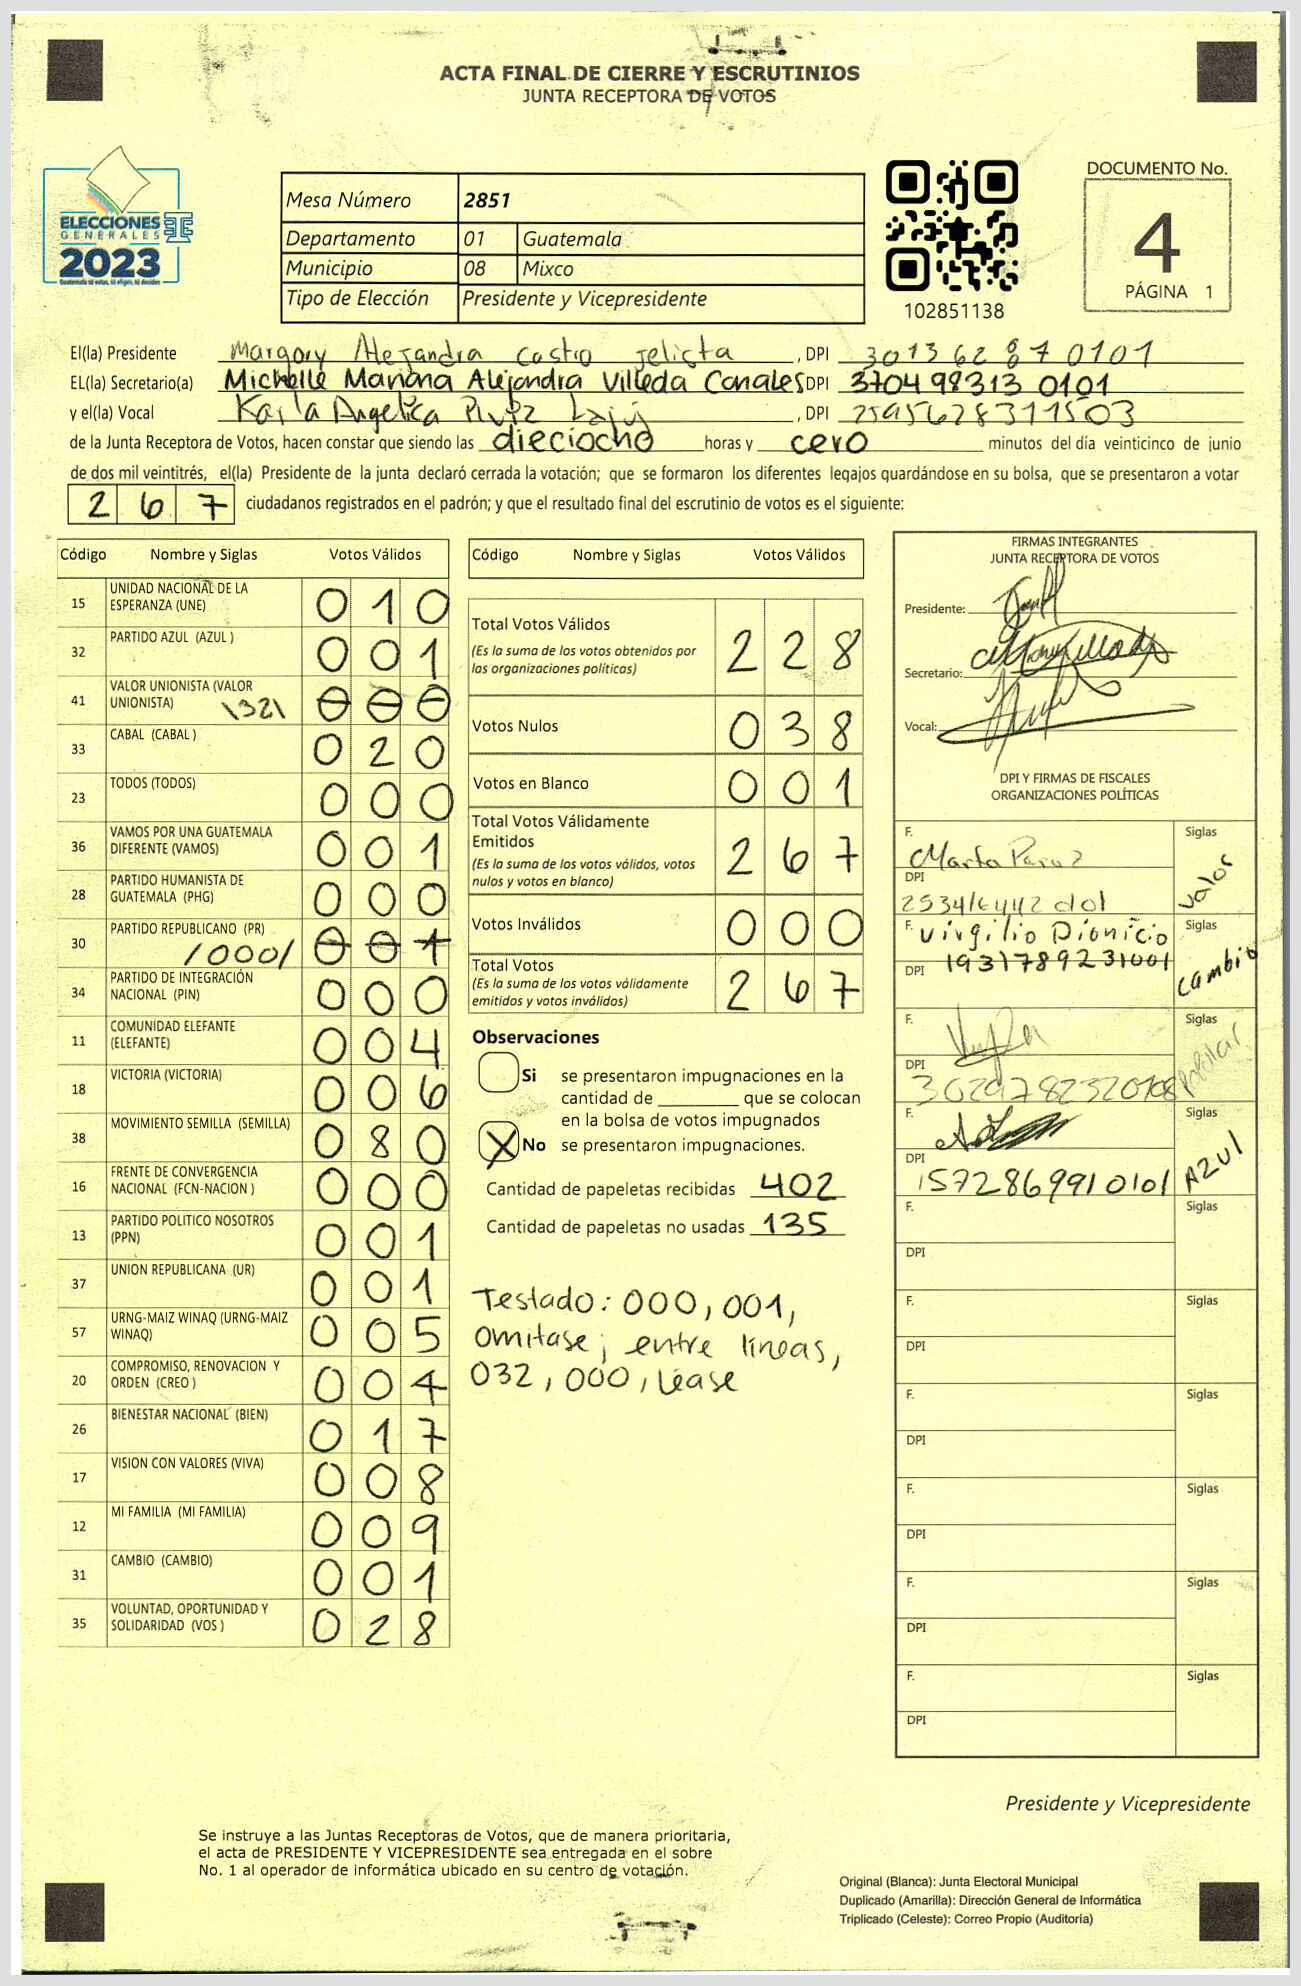 ACTA FINAL DE CIERRE Y ESCRUTINIOS
JUNTA RECEPTORA DE VOTOS
ELECCIONES
GENERALES
2023
Guatemala tú votas, tú eliges, tú decides
Mesa Número 2851
Departamento 01 Guatemala
Municipio 08 Mixco
Tipo de Elección Presidente y Vicepresidente
102851138
DOCUMENTO No.
4
PÁGINA 1
El(la) Presidente Margory Alejandra Castro , DPI
EL(la) Secretario(a) Michelle Mariana Alejandra Villeda Canales DPI 3704 98313 0101
y el(la) Vocal Karla Angelica , DPI 2595628311503
de la Junta Receptora de Votos, hacen constar que siendo las dieciocho horas y cero minutos del día veinticinco de junio
de dos mil veintitrés, el(la) Presidente de la junta declaró cerrada la votación; que se formaron los diferentes legajos guardándose en su bolsa, que se presentaron a votar
267 ciudadanos registrados en el padrón; y que el resultado final del escrutinio de votos es el siguiente:
Código Nombre y Siglas Votos Válidos
15 UNIDAD NACIONAL DE LA ESPERANZA (UNE) 010
32 PARTIDO AZUL (AZUL ) 001
41 VALOR UNIONISTA (VALOR UNIONISTA) \32\ 000
33 CABAL (CABAL ) 020
23 TODOS (TODOS) 000
36 VAMOS POR UNA GUATEMALA DIFERENTE (VAMOS) 001
28 PARTIDO HUMANISTA DE GUATEMALA (PHG) 000
30 PARTIDO REPUBLICANO (PR) /000/ 001
34 PARTIDO DE INTEGRACIÓN NACIONAL (PIN) 000
11 COMUNIDAD ELEFANTE (ELEFANTE) 004
18 VICTORIA (VICTORIA) 006
38 MOVIMIENTO SEMILLA (SEMILLA) 080
16 FRENTE DE CONVERGENCIA NACIONAL (FCN-NACION ) 000
13 PARTIDO POLITICO NOSOTROS (PPN) 001
37 UNION REPUBLICANA (UR) 001
57 URNG-MAIZ WINAQ (URNG-MAIZ WINAQ) 005
20 COMPROMISO, RENOVACION Y ORDEN (CREO ) 004
26 BIENESTAR NACIONAL (BIEN) 017
17 VISION CON VALORES (VIVA) 008
12 MI FAMILIA (MI FAMILIA) 009
31 CAMBIO (CAMBIO) 001
35 VOLUNTAD, OPORTUNIDAD Y SOLIDARIDAD (VOS ) 028
Código Nombre y Siglas Votos Válidos
Total Votos Válidos 228
(Es la suma de los votos obtenidos por
las organizaciones políticas)
Votos Nulos 038
Votos en Blanco 001
Total Votos Válidamente
Emitidos 267
(Es la suma de los votos válidos, votos
nulos y votos en blanco)
Votos Inválidos 000
Total Votos 267
(Es la suma de los votos válidamente
emitidos y votos inválidos)
Observaciones
Si se presentaron impugnaciones en la
cantidad de ________ que se colocan
en la bolsa de votos impugnados
X No se presentaron impugnaciones.
Cantidad de papeletas recibidas 402
Cantidad de papeletas no usadas 135
Testado: 000, 001,
omitase; entre líneas,
032, 000, Léase
FIRMAS INTEGRANTES
JUNTA RECEPTORA DE VOTOS
Presidente:
Secretario:
Vocal:
DPI Y FIRMAS DE FISCALES
ORGANIZACIONES POLÍTICAS
F. Marta Siglas
DPI valor
F. Virgilio Dionicio Siglas
DPI 1931789231001 cambio
F. Siglas
DPI
F. Siglas
DPI 1572869910101 AZUL
F. Siglas
DPI
F. Siglas
DPI
F. Siglas
DPI
F. Siglas
DPI
F. Siglas
DPI
F. Siglas
DPI
Presidente y Vicepresidente
Se instruye a las Juntas Receptoras de Votos, que de manera prioritaria,
el acta de PRESIDENTE Y VICEPRESIDENTE sea entregada en el sobre
No. 1 al operador de informática ubicado en su centro de votación.
Original (Blanca): Junta Electoral Municipal
Duplicado (Amarilla): Dirección General de Informática
Triplicado (Celeste): Correo Propio (Auditoría)